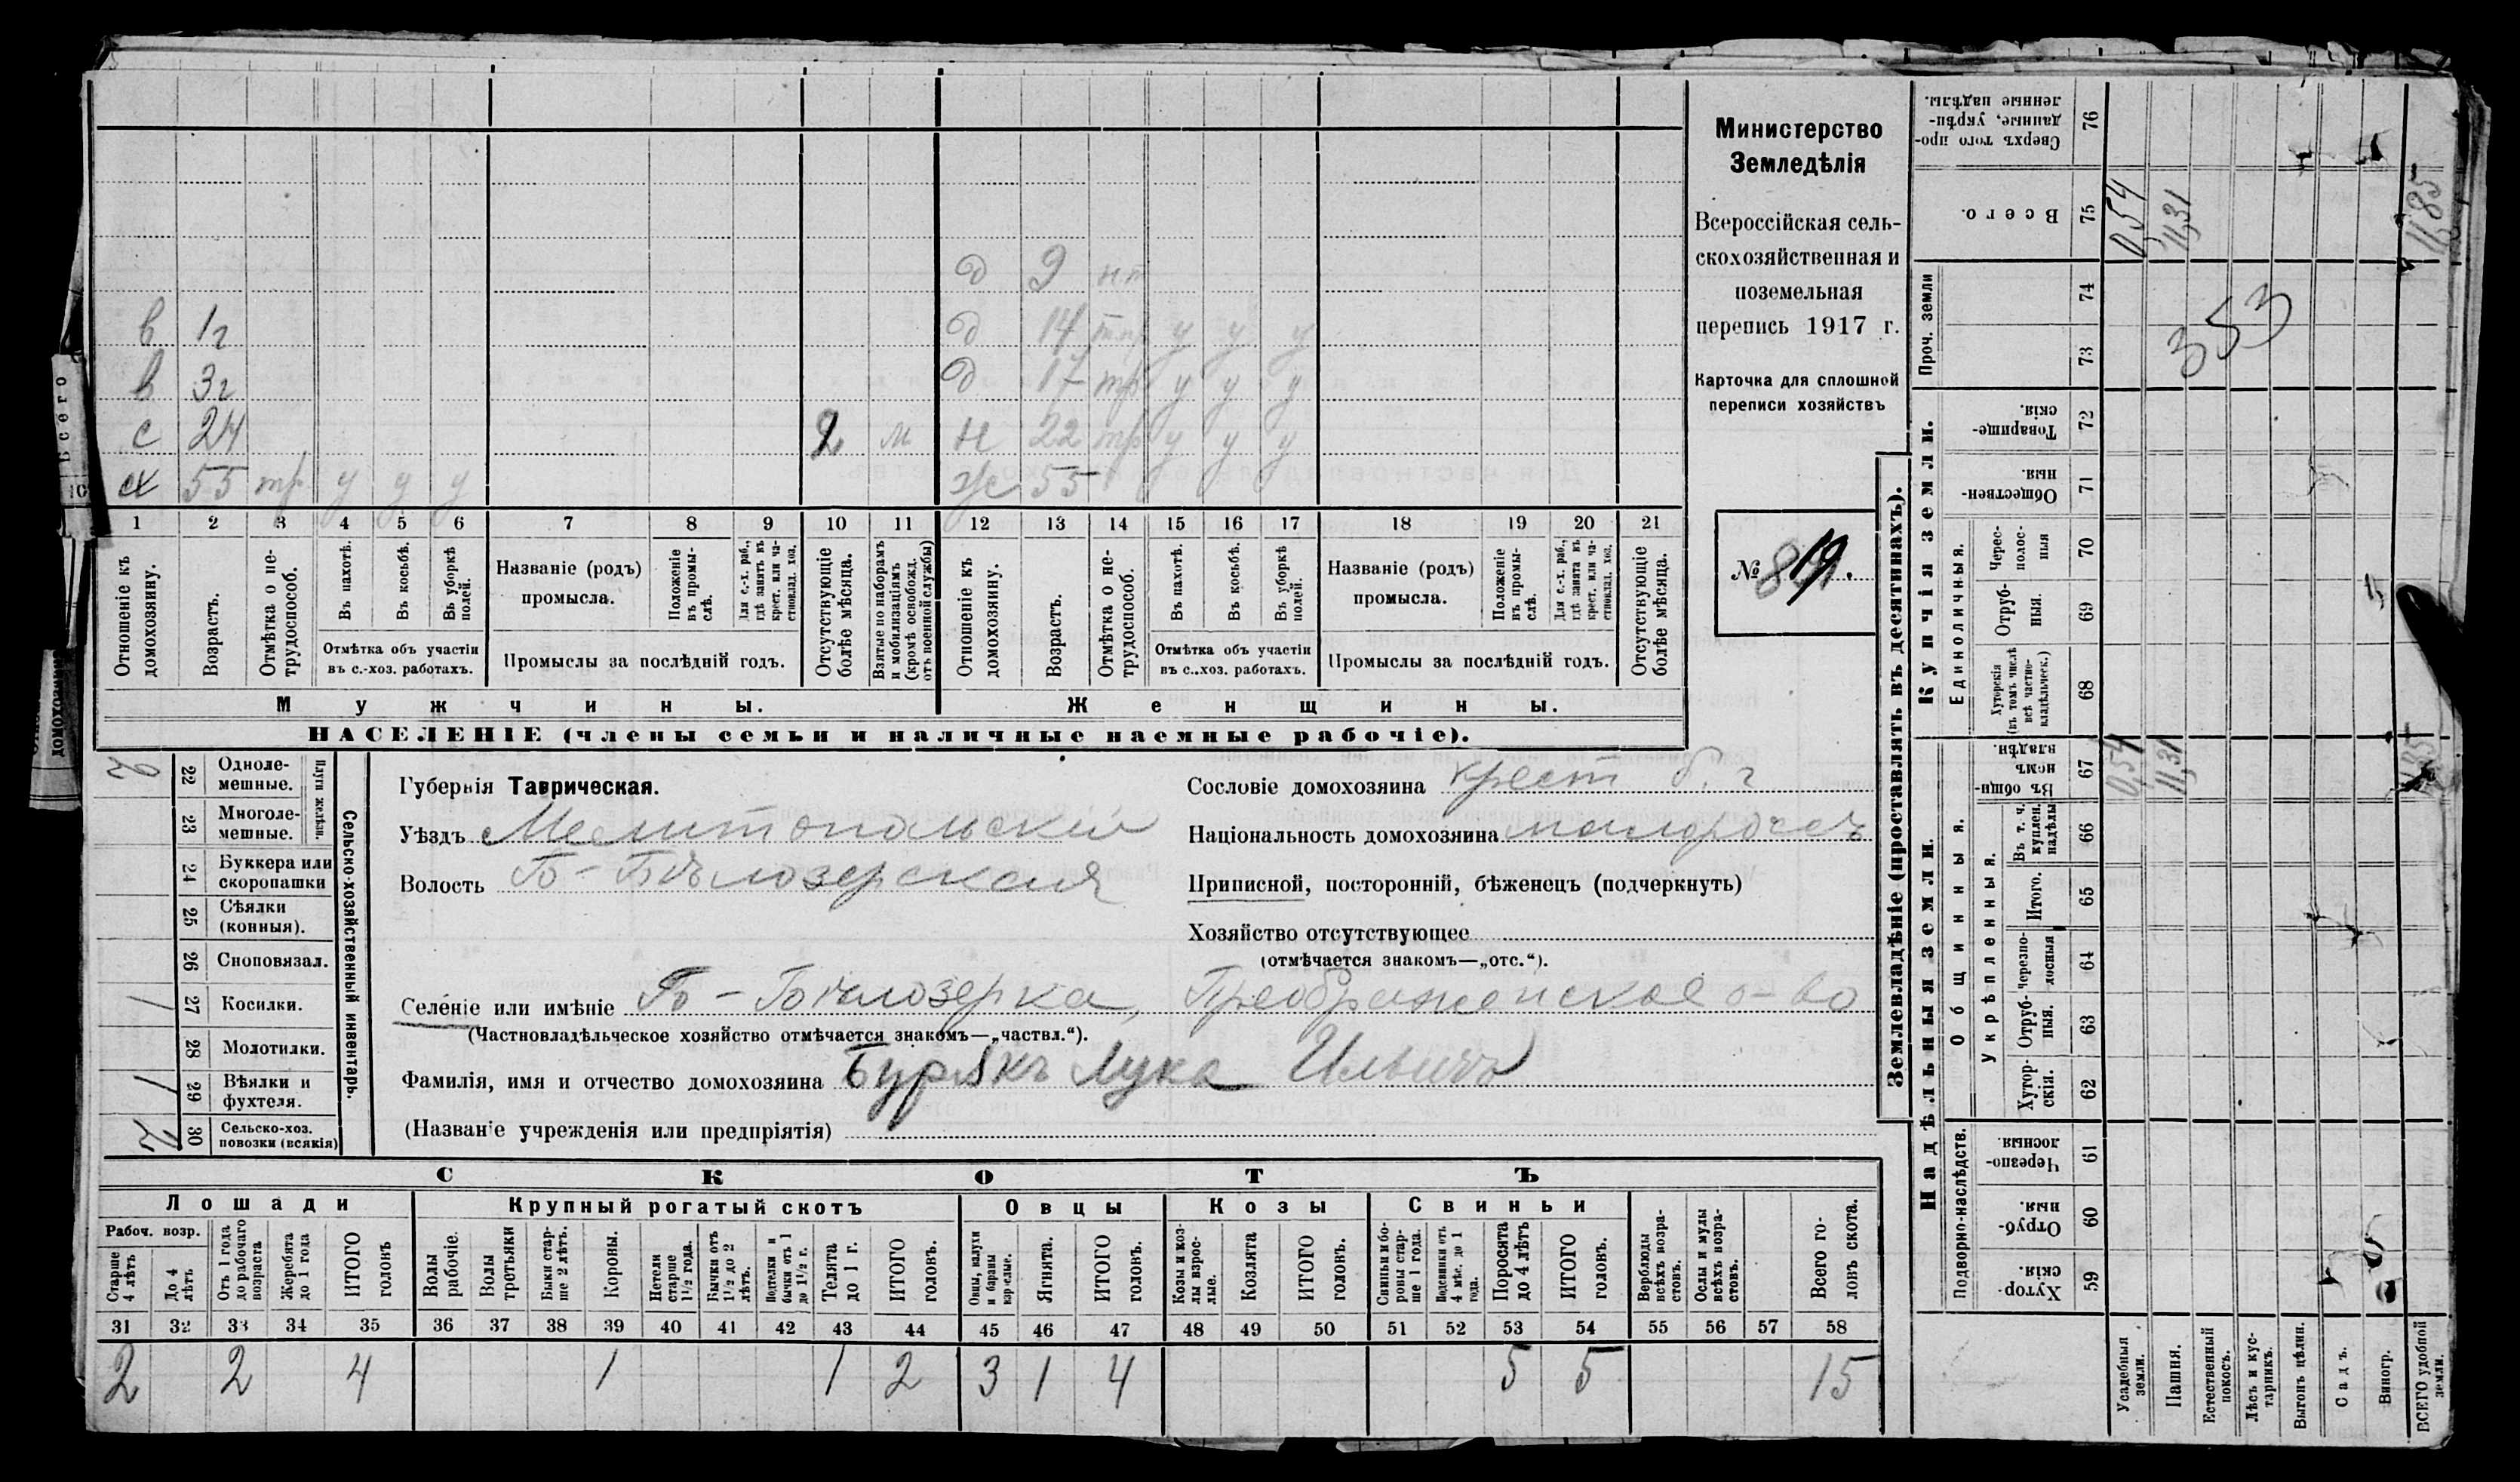 Министерство
Земледѣлія
Всероссійская сель-
скохозяйственная и
поземельная
перепись 1917 г.
Карточка для сплошной
переписи хозяйствъ
№ 819.
д 9 нт
в 1г д 14 у у у
в 3г д 17 тр у у у
с 24 2 м н 22 тр у у у
х 55 тр у у у ж 55
1 2 3 4 5 6 7 8 9 10 11 12 13 14 15 16 17 18 19 20 21
Отношеніе къ домохозяину.
Возрастъ.
Отмѣтка о не-трудоспособ.
Въ пахотѣ.
Въ косьбѣ.
Въ уборкѣ полей.
Отмѣтка объ участіи
въ с.-хоз. работахъ.
Названіе (родъ)
промысла.
Положеніе въ промы-слѣ.
Для с.-х. раб., гдѣ занятъ въ крест. или ча-стновлад. хоз.
Промыслы за послѣдній годъ.
Отсутствующіе болѣе мѣсяца.
Взятые по наборамъ и мобилизаціямъ (кромѣ освобожд. отъ военной службы)
Отношеніе къ домохозяину.
Возрастъ.
Отмѣтка о не-трудоспособ.
Въ пахотѣ.
Въ косьбѣ.
Въ уборкѣ полей.
Отмѣтка объ участіи
въ с..хоз. работахъ.
Названіе (родъ)
промысла.
Положеніе въ промы-слѣ.
Для с.-х. раб., гдѣ занята въ крест. или ча-стновлад. хоз.
Промыслы за послѣдній годъ.
Отсутствующіе болѣе мѣсяца.
Мужчины.
Женщины.
НАСЕЛЕНІЕ (члены семьи и наличные наемные рабочіе).
Сельско-хозяйственный инвентарь.
Плуги желѣзн.
2 22 Одноле-мешные.
23 Многоле-мешные.
24 Буккера или скоропашки
25 Сѣялки (конныя).
26 Сноповязал.
1 27 Косилки.
28 Молотилки.
1 29 Вѣялки и фухтеля.
2 30 Сельско-хоз. повозки (всякія)
Губернія Таврическая.
Уѣздъ Мелитопольскій
Волость Б-Бѣлозерская
Сословіе домохозяина крест б. г
Національность домохозяина малороссъ
Приписной, посторонній, бѣженецъ (подчеркнуть)
Хозяйство отсутствующее
(отмѣчается знакомъ—„отс.“).
Селеніе или имѣніе Б-Бѣлозерка, Преображенское о-во
(Частновладѣльческое хозяйство отмѣчается знакомъ—„частвл.“).
Фамилія, имя и отчество домохозяина Бурякъ Лука Ильичъ
(Названіе учрежденія или предпріятія)
СКОТЪ
Лошади
Крупный рогатый скотъ
Овцы
Козы
Свиньи
Рабоч. возр.
Старше 4 лѣтъ
До 4 лѣтъ
Отъ 1 года до рабочаго возраста
Жеребята до 1 года
ИТОГО головъ
Волы рабочіе.
Волы третьяки
Быки стар-ше 2 лѣтъ.
Коровы.
Нетели старше 1½ года.
Бычки отъ 1½ до 2 лѣтъ.
Нетелки и бычки отъ 1 до 1½ г.
Телята до 1 г.
ИТОГО головъ.
Овцы, валухи и бараны взрослые.
Ягнята.
ИТОГО головъ.
Козы и коз-лы взрос-лые.
Козлята
ИТОГО головъ.
Свиньи и бо-ровы стар-ше 1 года.
Подсвинки отъ 4 мѣс. до 1 года.
Поросята до 4 лѣтъ
ИТОГО головъ.
Верблюды всѣхъ возра-стовъ.
Ослы и мулы всѣхъ возра-стовъ.
Всего го-ловъ скота.
31 32 33 34 35 36 37 38 39 40 41 42 43 44 45 46 47 48 49 50 51 52 53 54 55 56 57 58
2 2 4 1 1 2 3 1 4 5 5 15
Землевладѣніе (проставлять въ десятинахъ).
Надѣльныя земли.
Купчія земли.
Проч. земли
Подворно-наслѣдств.
Общинныя.
Укрѣпленныя.
Единоличныя.
Сверхъ того про-данные, укрѣп-ленные надѣлы. 76
Всего. 75 0,54 11,31 11,85
74
73
353
Товарище-скія. 72
Обществен-ныя. 71
Черес-полос-ныя 70
Отруб-ныя. 69
Хуторскія (въ томъ числѣ всѣ частно-владѣльческ.) 68
Въ общин-номъ владѣн. 67 0,54 11,31 11,85
Въ т. ч. куплен. надѣлы 66
Итого. 65
Черезпо-лосныя 64
Отруб-ныя. 63
Хутор-скія. 62
Черезпо-лосныя. 61
Отруб-ныя. 60
Хутор-скія. 59
Усадебныя земли.
Пашня.
Естественный покосъ.
Лѣсъ и кус-тарникъ.
Выгонъ цѣлин.
Садъ.
Виногр.
ВСЕГО удобной земли.
Всего
домохозяи